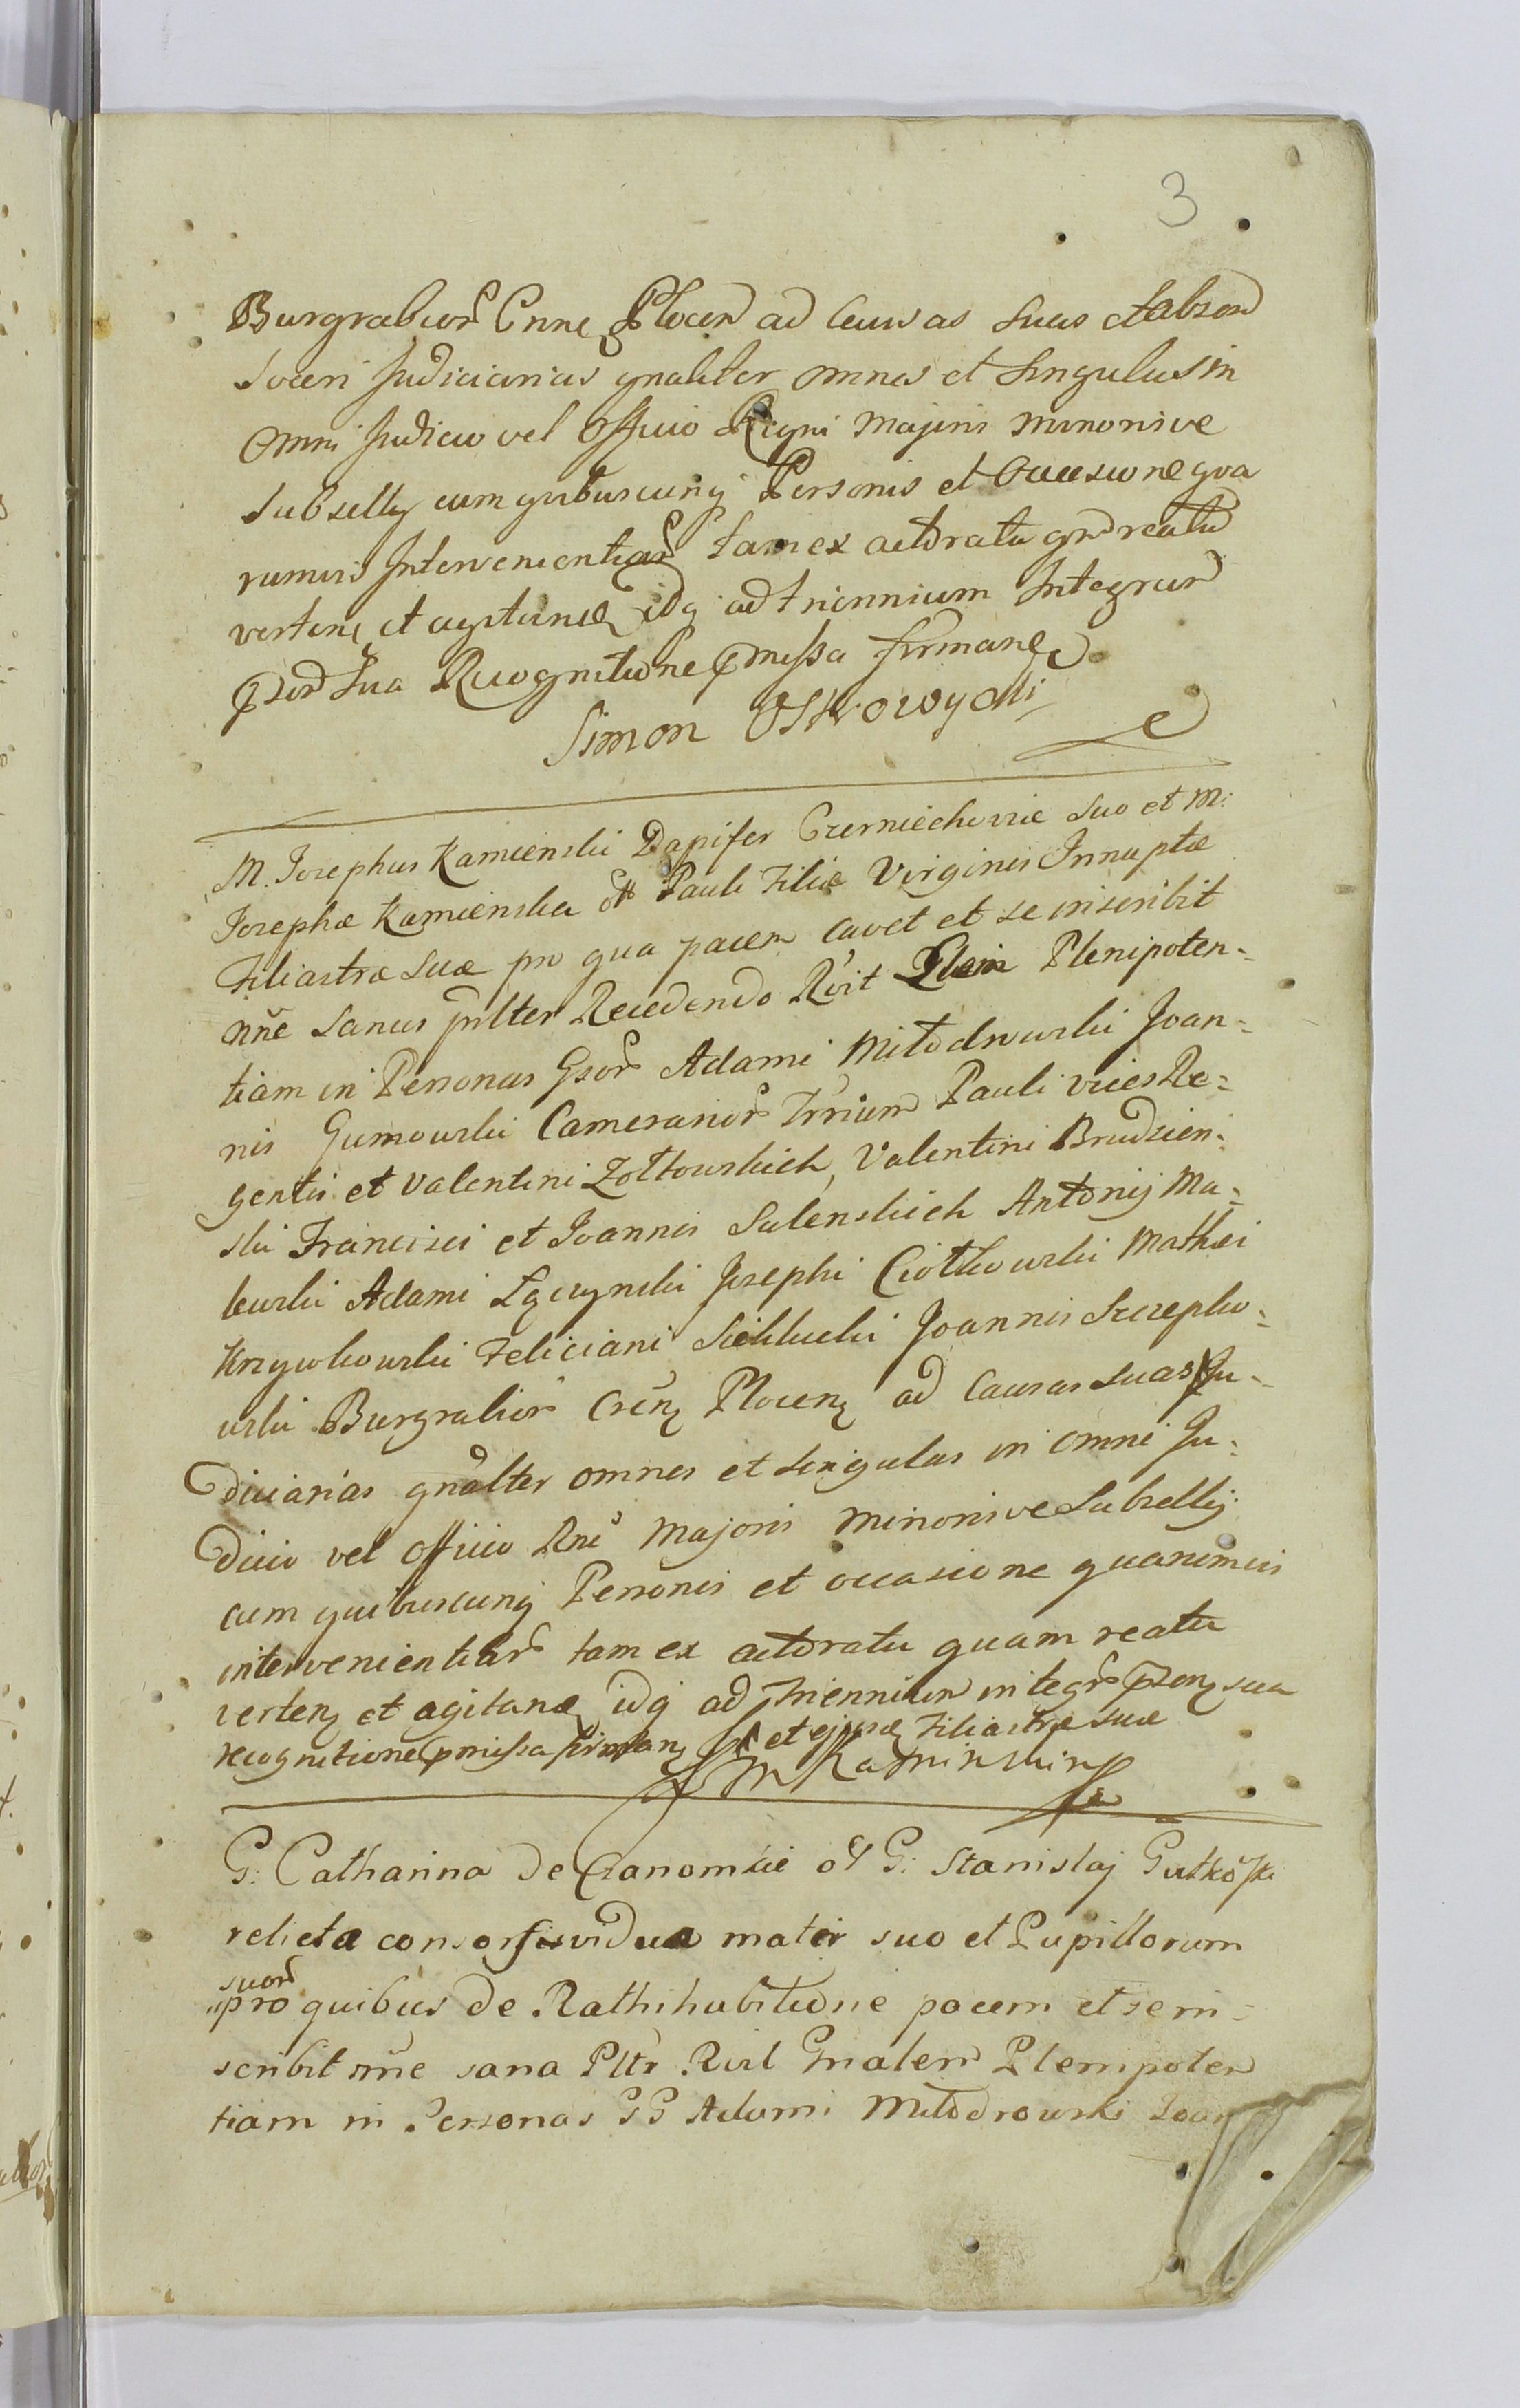 3
Burgrabior Crnne Plocen ad Causas suas et absen
Soceri Judiciarias gnaliter omnes et singulas in
omni Judicio vel Officio Regni Majoris minorisve
Subsellij cum quibuscunq Personis et Occasione qua
rumvis Intervenientiar tam ex actoratu qm reatu
verten et agitan idq ad triennium Integrum
pzen Sua Recognitione pmissa firman
Simon Ostrowycki
M. Josephus Kamienski Dapifer Czerniechoviæ Suo et M:
Josephæ Kamienska olt Pauli Filiæ Virginis Innuptæ
Filiastræ Suæ pro qua pacem cavet et se inscribit
nñe Sanus pulter Recedendo Rcit Plenipoten=
tiam in Personas Gsor Adami Młodrowski Joan=
nis Gumowski Camerarior Trrium Pauli vices Re=
gentis et Valentini Zołtowskich, Valentini Brudzien=
ski Francisci et Joannis Sulenskich Antonij Ma=
kurski Adami Łączynski Josephi Ciołkowski Mathæi
Krzywkowski Feliciani Siekłucki Joannis Szczepko=
wski Burgrabior Crēn Plocen ad Causas Suas Ju=
diciarias gnalter omnes et singulas in omni Ju=
dicio vel officio Rni Majoris minorisve Subsellij
cum quibuscunq Personis et occasione quarumvis
intervenientiar tam ex actoratu quam reatu
verten et agitan idq ad Triennium integr pzen sua
recognitione pmissa firman et ejusd Filiastræ suæ
JM Kaminski
G: Catharina de Czanomskie olt G: Stanislaj Gutkoski
relicta consors vidua mater suo et Pupillorum
suor
pro quibus de Rathihabitione pacem et se in=
scribit nñe sana Pltr Rcit Gnalem Plenipoten
tiam in Personas GG Adami Młodrowski Joan